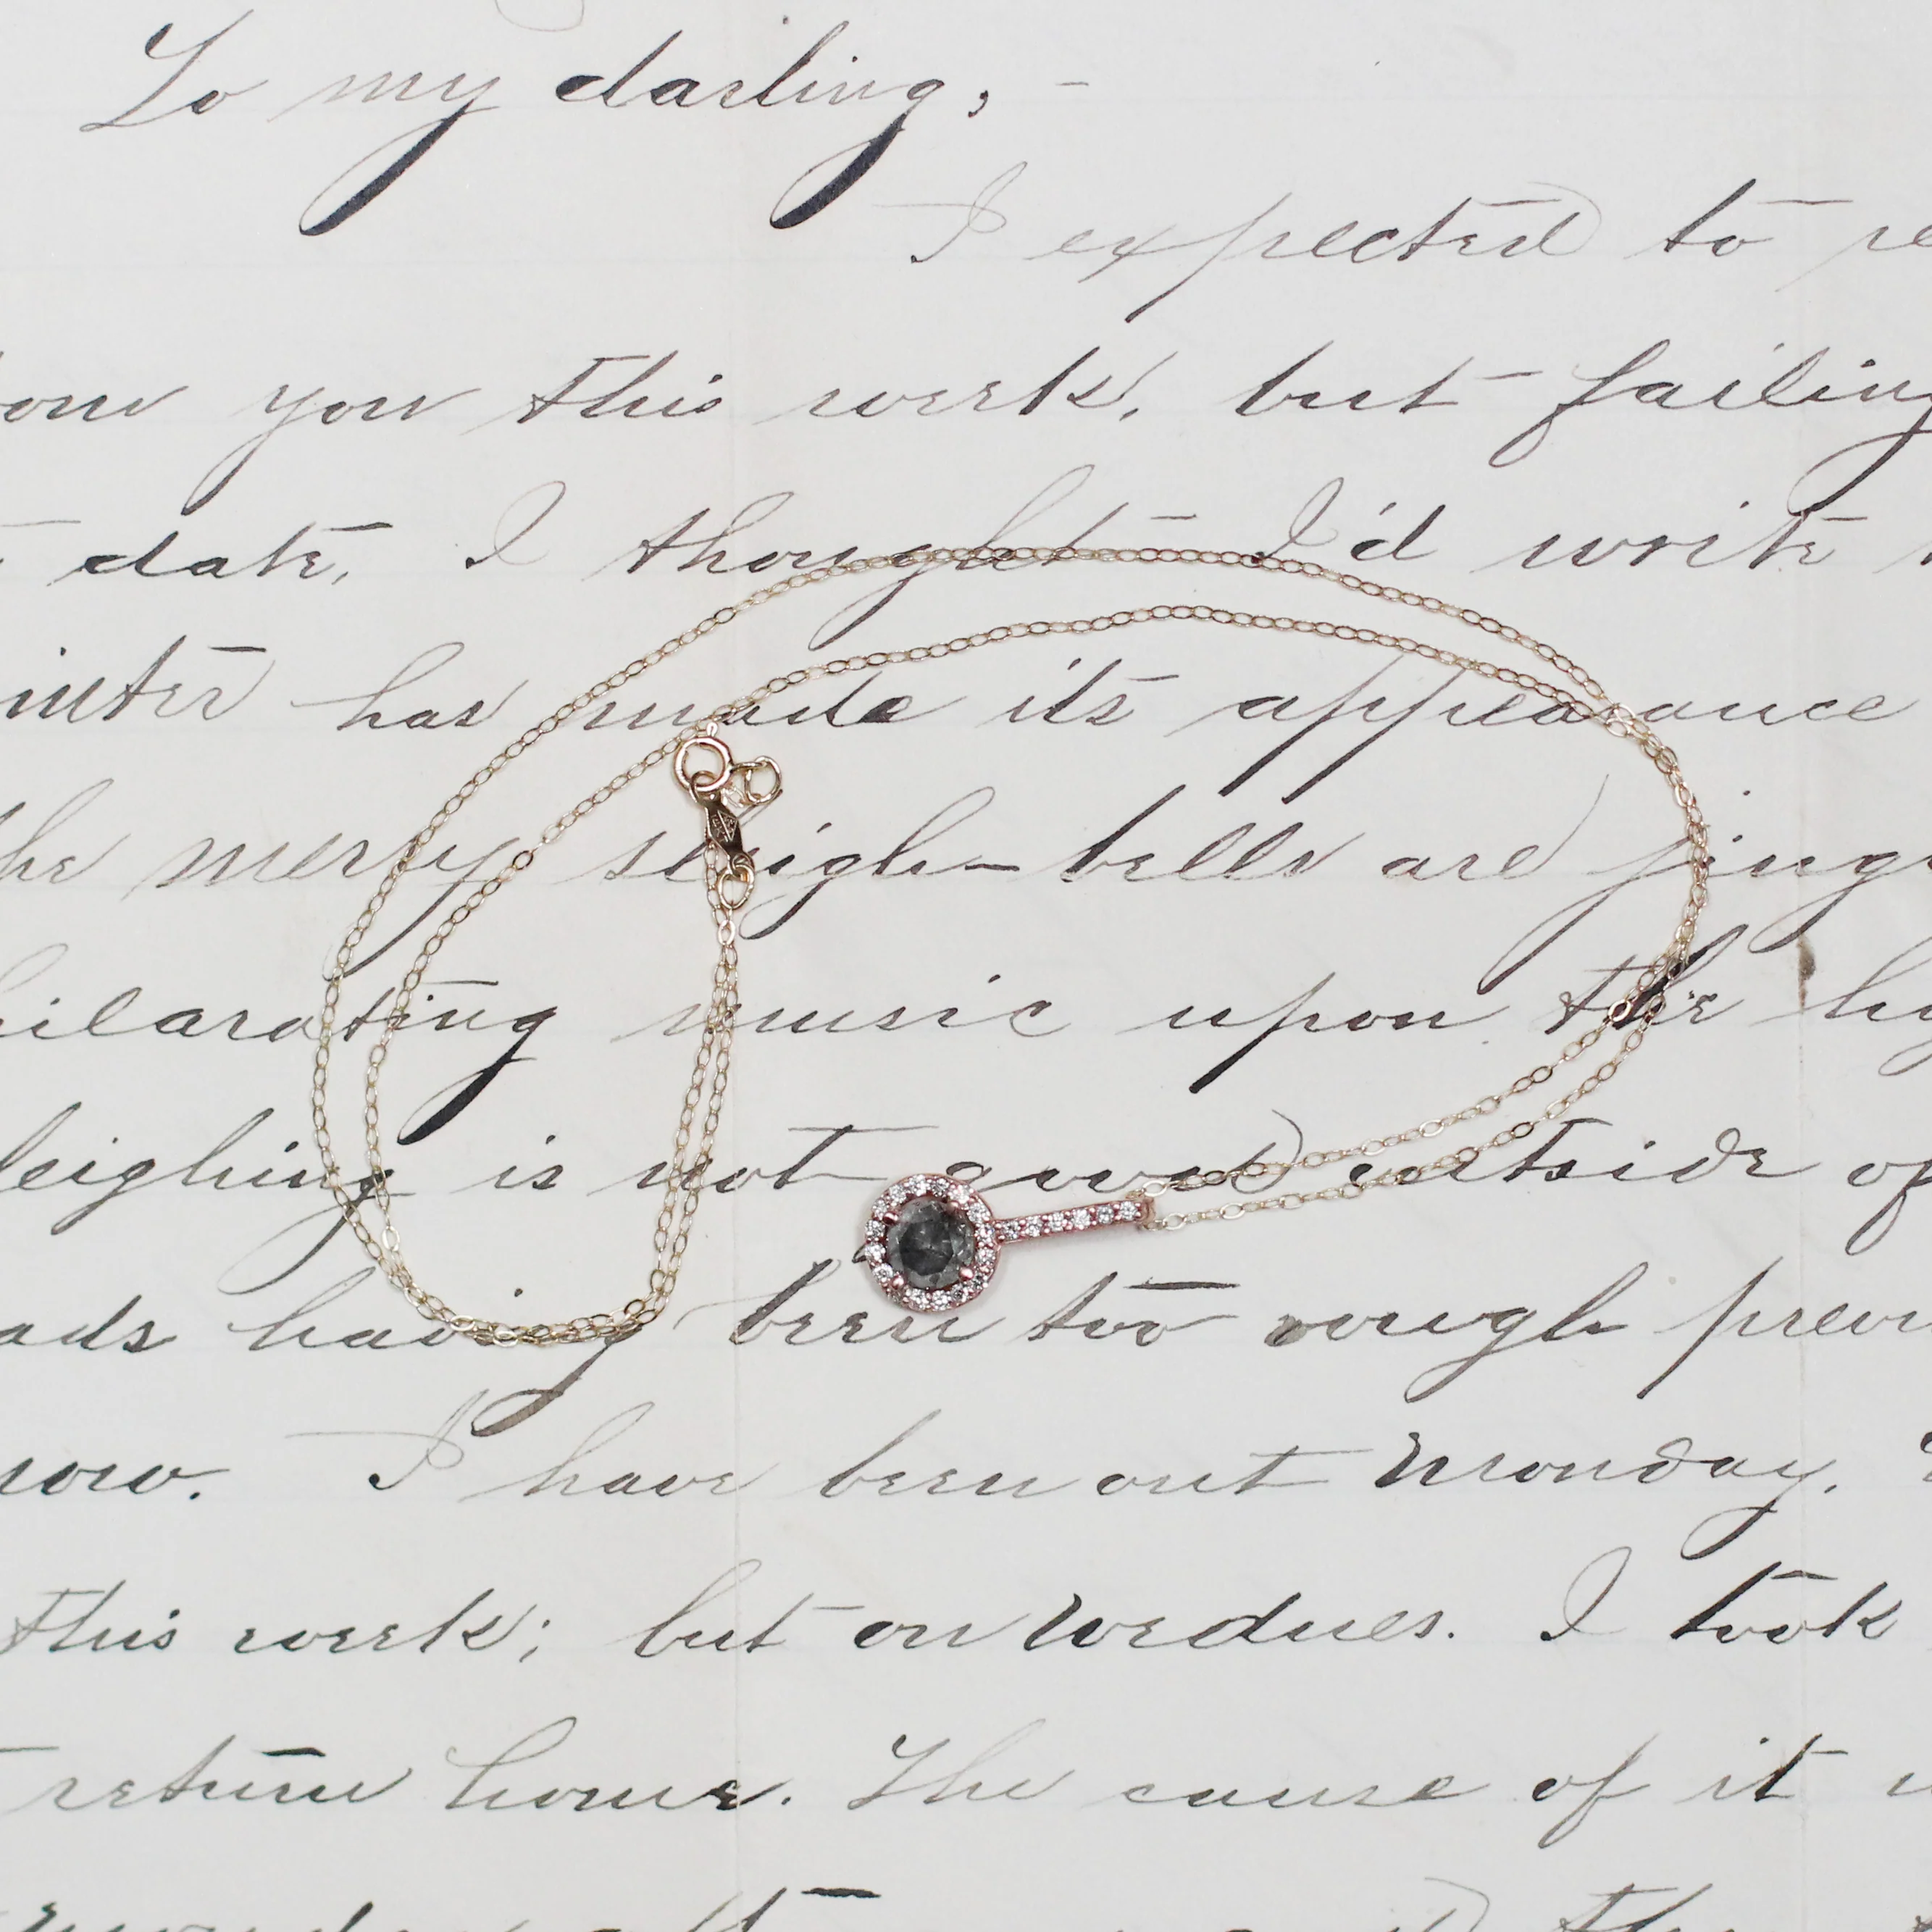 To my darling, -
I expected to re
om you this week, but failing
date, I thought I'd write
inter has made its appearance
he merry sleigh-bells are jing
hilarating music upon the hi
leighing is not good outside of
ads having been too rough previ
now. I have been out Monday,
this week; but on Wednes. I took
return home. The cause of it